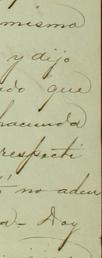 mismo
y dijo
do que
hacienda
respecti
no adeu
a - Doy